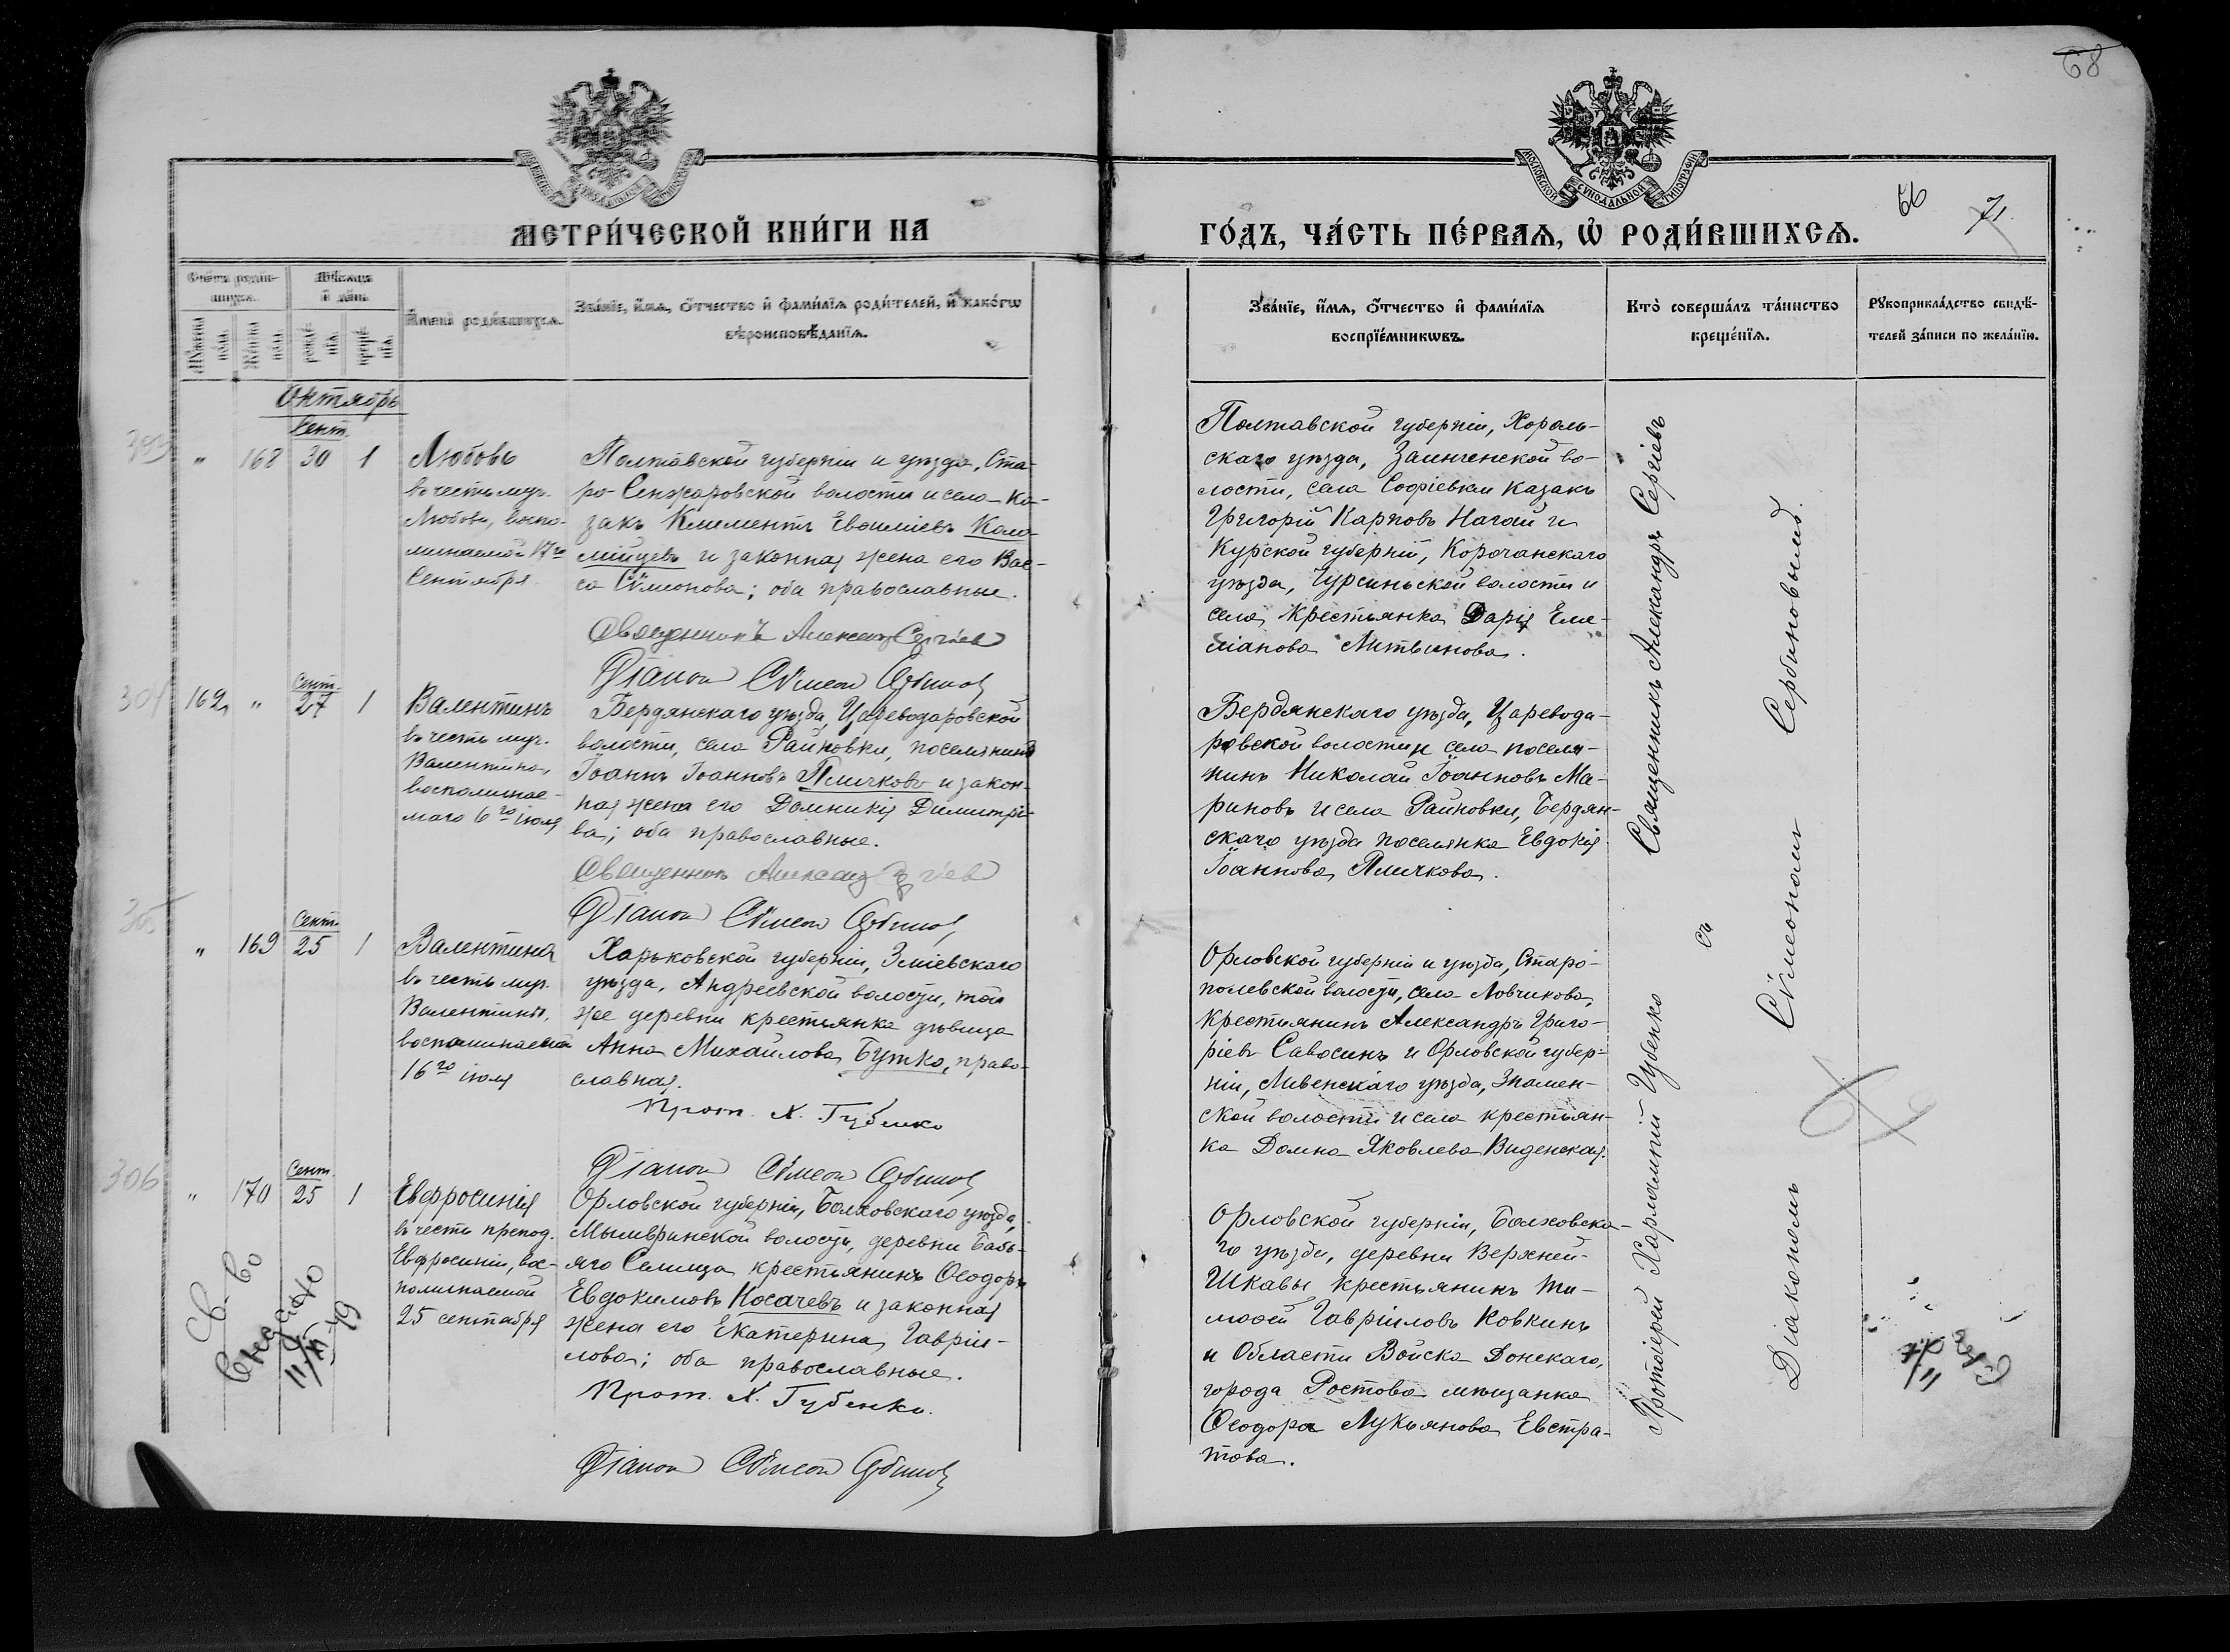 68
МОСКОВСКОЙ СѴНОДАЛЬНОЙ ТИПОГРАФІИ
МЕТРИ́ЧЕСКОЙ КНИ́ГИ НА
ГО́ДЪ, ЧА́СТЬ ПЕ́РВАЯ, Ѡ РОДИ́ВШИХСЯ.
66 71
Счетъ родив-
шихся.
Мѣсяцъ
и день
Мужеска пола.
Женска пола.
рожде нія.
креще нія.
Имена родившихся.
Зва́нїе, и́мя, о́тчество и фами́лїя роди́телей, и како́гѡ
вѣроисповѣданїя.
Зва́нїе, и́мя, о́тчество и фами́лїя
воспрїе́мникѡвъ.
Кто̀ соверша́лъ та́инство
креще́нїя.
Рꙋкоприкла́дство свидѣ́-
телей за́писи по жела́нїю.
Октябрь
Сент.
" 168 30 1
Любовь
въ честь муч.
Любови, воспо-
минаемой 17го
Сентября.
Полтавской губерніи и уѣзда, Ста-
ро-Сенжаровской волости и села ка-
закъ Климентъ Евѳиміевъ Коло-
мійцевъ и законная жена его Вас-
са Сѵмеонова; оба православные.
Священникъ Александръ Сергіевъ
Діаконъ Сѵмеонъ Сербиновъ
Полтавской губерніи, Хороль-
скаго уѣзда, Заинченской во-
лости, села Софіевки казакъ
Григорій Карповъ Нагай и
Курской губерніи, Корочанскаго
уѣзда, волости и
села крестьянка Дарія Еми-
ліанова Литвинова.
304 162 " Сент. 27 1
Валентинъ
въ честь муч.
Валентина,
воспоминае-
маго 6го іюля
Бердянскаго уѣзда, Цареводаровской
волости, села Райновки, поселянинъ
Іоаннъ Іоанновъ Пличковъ и закон-
ная жена его Домникія Димитріе-
ва; оба православные.
Священникъ Александръ Сергіевъ
Діаконъ Сѵмеонъ Сербиновъ
Бердянскаго уѣзда, Царевода-
ровской волости и села поселя-
нинъ Николай Іоанновъ Ма-
риновъ и села Райновки, Бердян-
скаго уѣзда поселянка Евдокія
Іоаннова Пличкова.
305 " 169 Сент. 25 1
Валентина
въ честь муч.
Валентины,
воспоминаемой
16го іюля
Харьковской губерніи, Зміевскаго
уѣзда, Андреевской волости, той
же деревни крестьянка дѣвица
Анна Михайлова Бутко, право-
славная.
Прот. Х. Губенко
Діаконъ Сѵмеонъ Сербиновъ
Орловской губерніи и уѣзда, Старо-
полевской волости, села Ловчикова,
крестьянинъ Александръ Григо-
ріевъ Савосинъ и Орловской губер-
ніи, Ливенскаго уѣзда, Знамен-
ской волости и села крестьян-
ка Домна Яковлева Виденская.
306 " 170 Сент. 25 1
Евфросинія
въ честь препод.
Евфросиніи, вос-
поминаемой
25 сентября
Орловской губерніи, Болховскаго уѣзда,
волости, деревни Бабь-
яго Селища крестьянинъ Ѳеодоръ
Евдокимовъ Носачевъ и законная
жена его Екатерина Гавріи-
лова; оба православные.
Прот. Х. Губенко.
Діаконъ Сѵмеонъ Сербиновъ
Орловской губерніи, Болховска-
го уѣзда, деревни Верхней-
Шкавы крестьянинъ Ти-
моѳей Гавріиловъ Ковкинъ
и Области Войска Донскаго,
города Ростова мѣщанка
Ѳеодора Лукьянова Евстра-
това.
Протоіерей Харлампій Губенко Священникъ Александръ Сергіевъ
съ
Діакономъ Сѵмеономъ Сербиновымъ.
Св-во